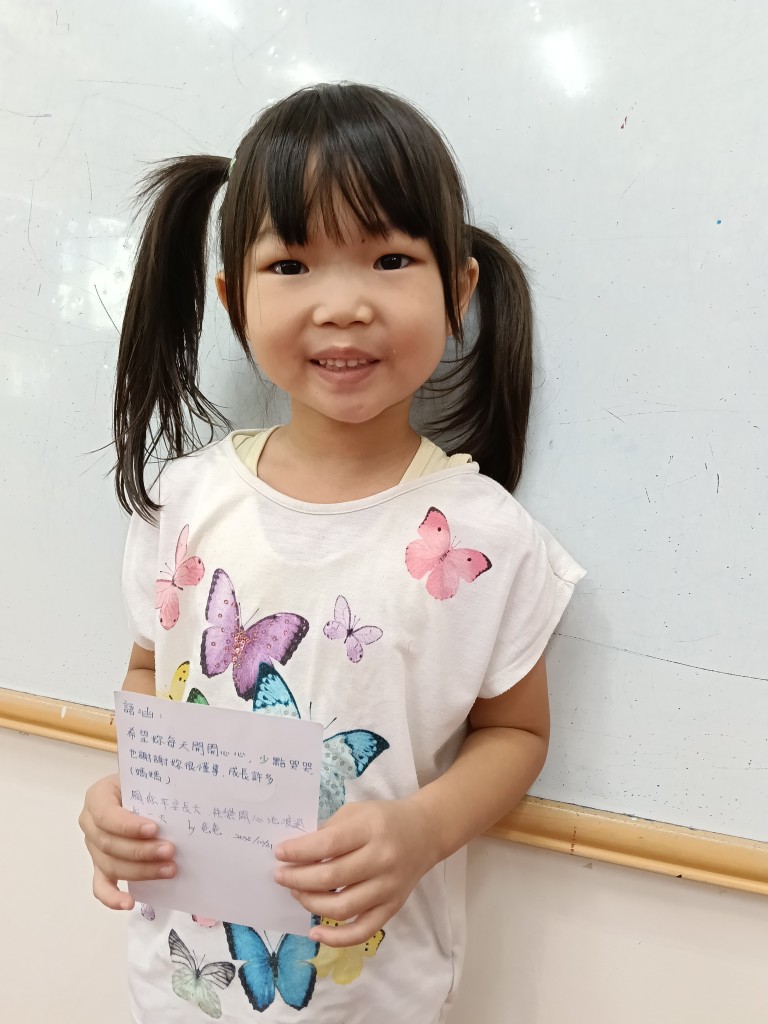 語涵：
希望妳每天開開心心，少點哭哭
也謝謝妳很懂事，成長許多
(媽媽)
願你平安長大 快樂開心地渡過
每一天 by 爸爸